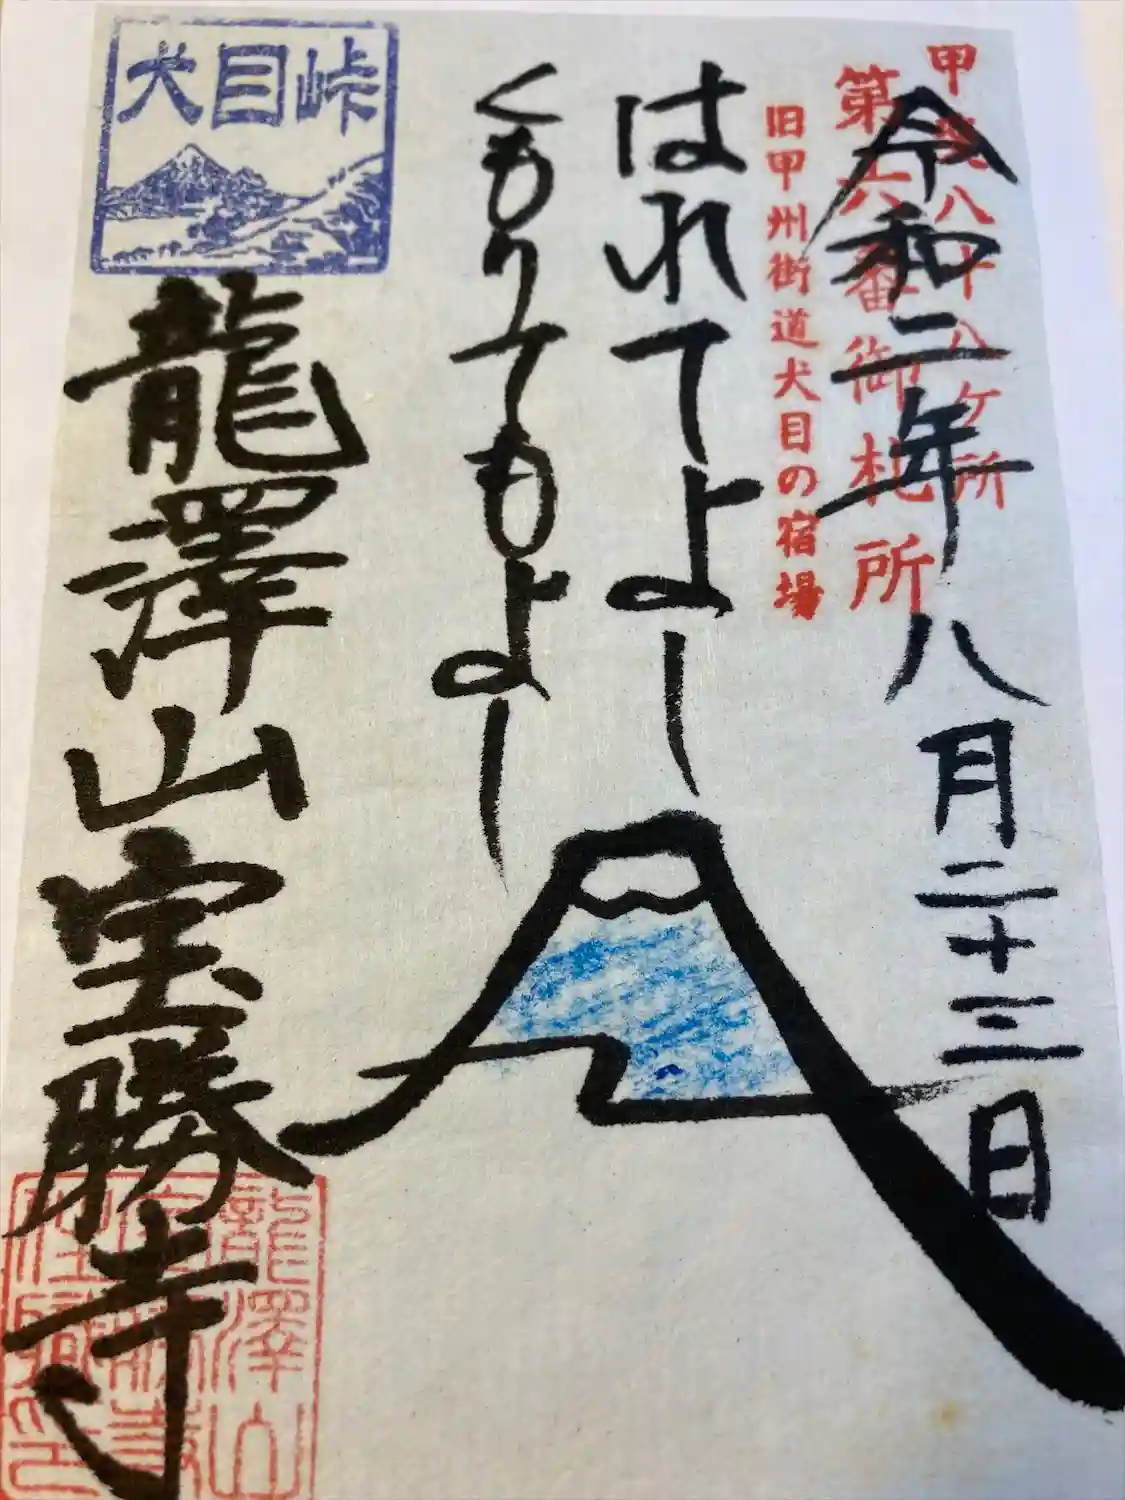 甲斐八十八ケ所
第六番御札所
旧甲州街道犬目の宿場
令和二年八月二十三日
はれてよし
くもりてもよし
犬目峠
龍澤山宝勝寺
龍澤山
宝勝寺
住職之印